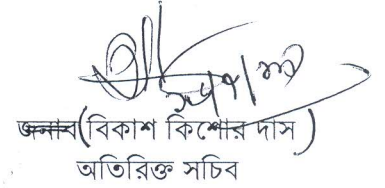 (বিকাশ কিশোর দাস)
অতিরিক্ত সচিব